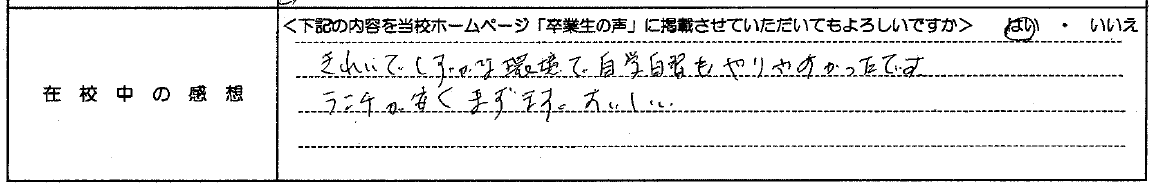 <下記の内容を当校ホームページ「卒業生の声」に掲載させていただいてもよろしいですか> はい ・ いいえ
在校中の感想
きれいでしずかな環境で自学自習もやりやすかったです
ランチが安くまずまずおいしい